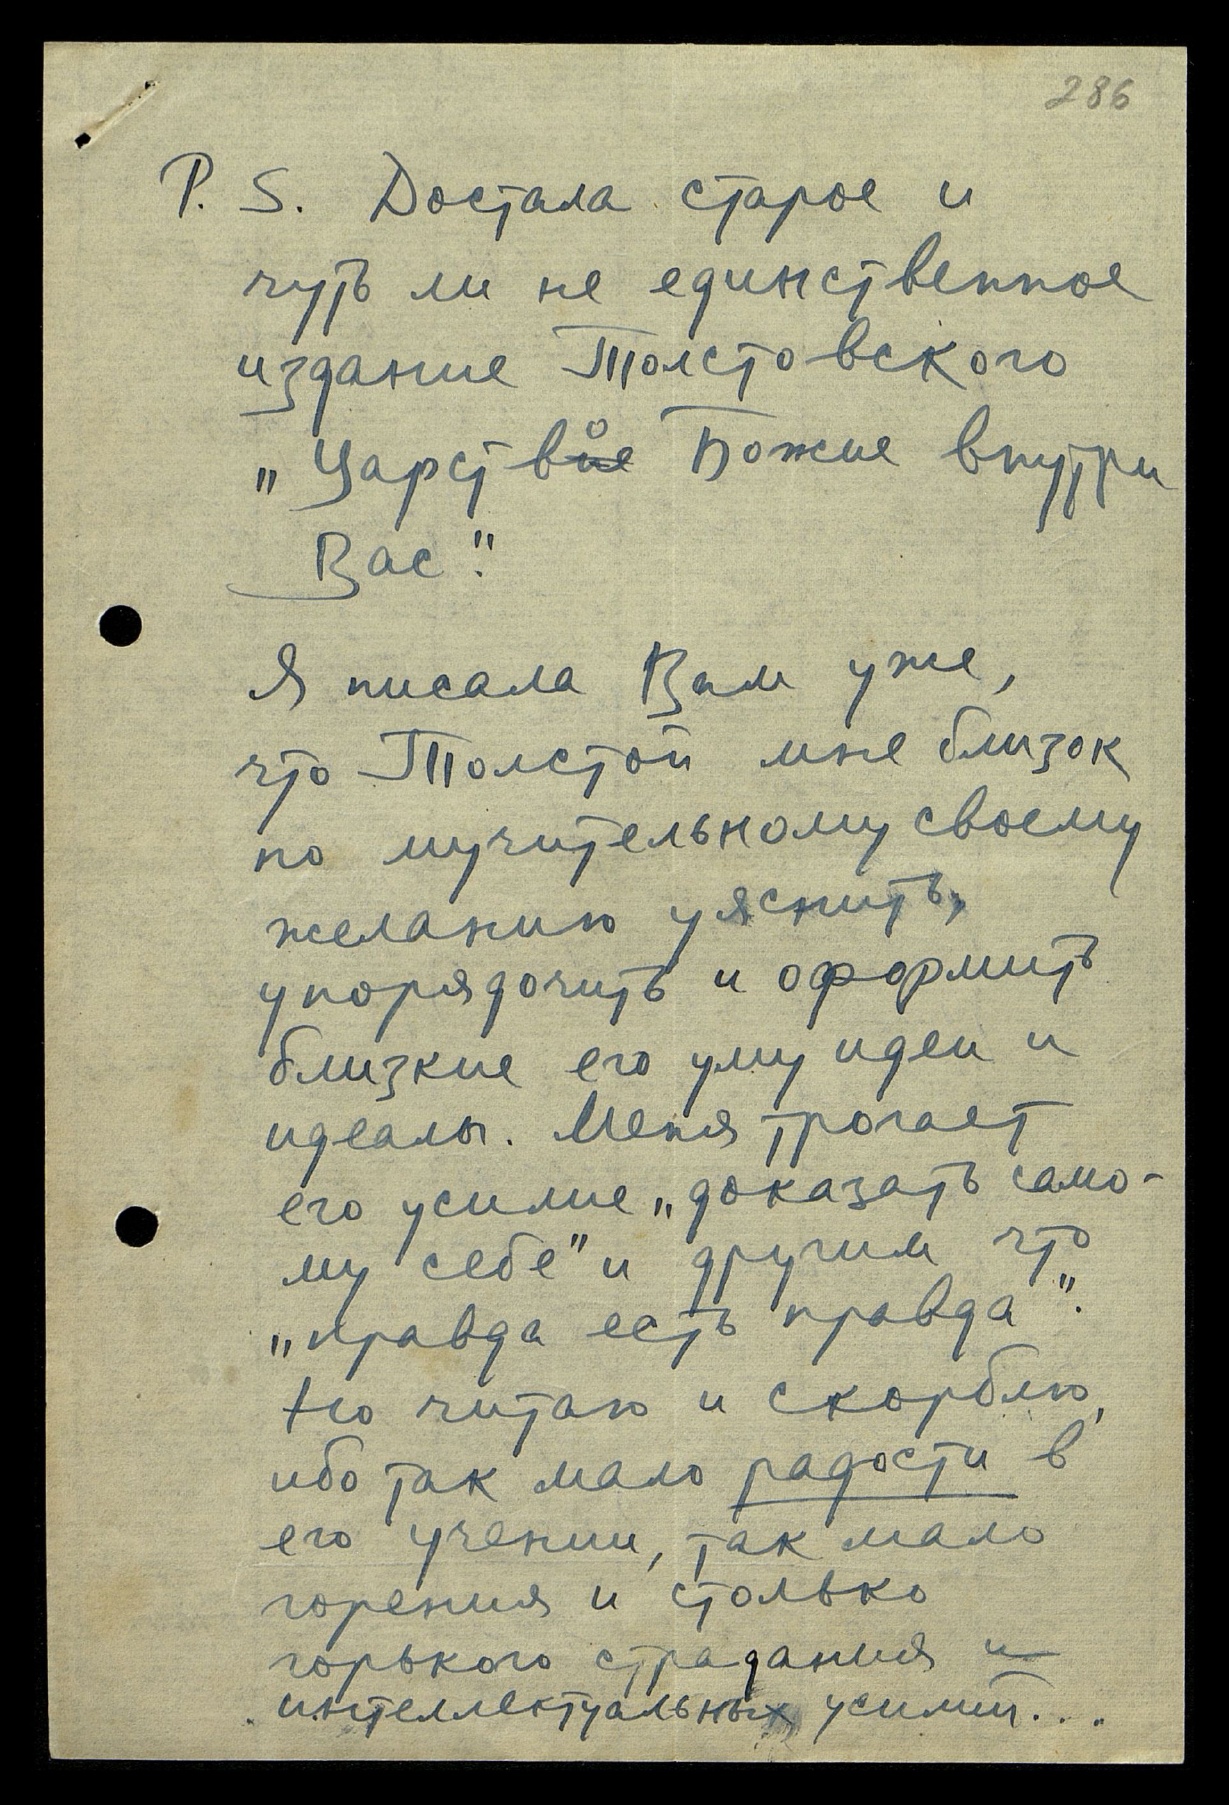 286
P. S. Достала старое и
чуть ли не единственное
издание Толстовского
„Царство Божие внутри
Вас".
Я писала Вам уже,
что Толстой мне близок
по мучительному своему
желанию уяснить,
упорядочить и оформить
близкие его уму идеи и
идеалы. Меня трогает
его усилие „доказать само-
му себе" и другим что
„правда есть правда".
Но читаю и скорблю,
ибо так мало радости в
его учении, так мало
горения и столько
горького страдания и
интеллектуальных усилий...